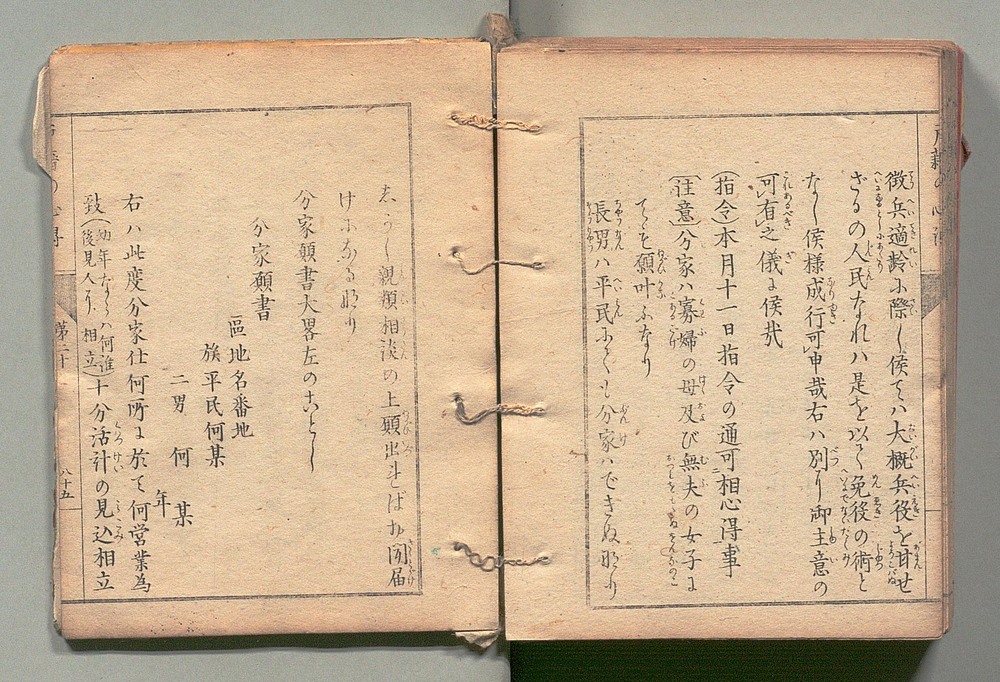 徴兵適齢ニ際し候てハ大概兵役を甘せ
ざるの人民なれハ是を以て免役の術と
なし候様成行可申哉右ハ別り御主意の
可有之儀に候哉
(指令)本月十一日指令の通可相心得事
(注意)分家ハ寡婦の母及び無夫の女子に
ても願叶ふなり
長男ハ平民にても分家ハできぬ也
親類相談の上願出
分家願書大畧左のごとし
分家願書
區地名番地
族平民何某
二男 何某
年
右ハ此度分家仕何所に於て何営業為
致(幼年ならハ何誰後見人り相立)十分活計の見込相立
第二十
八十五